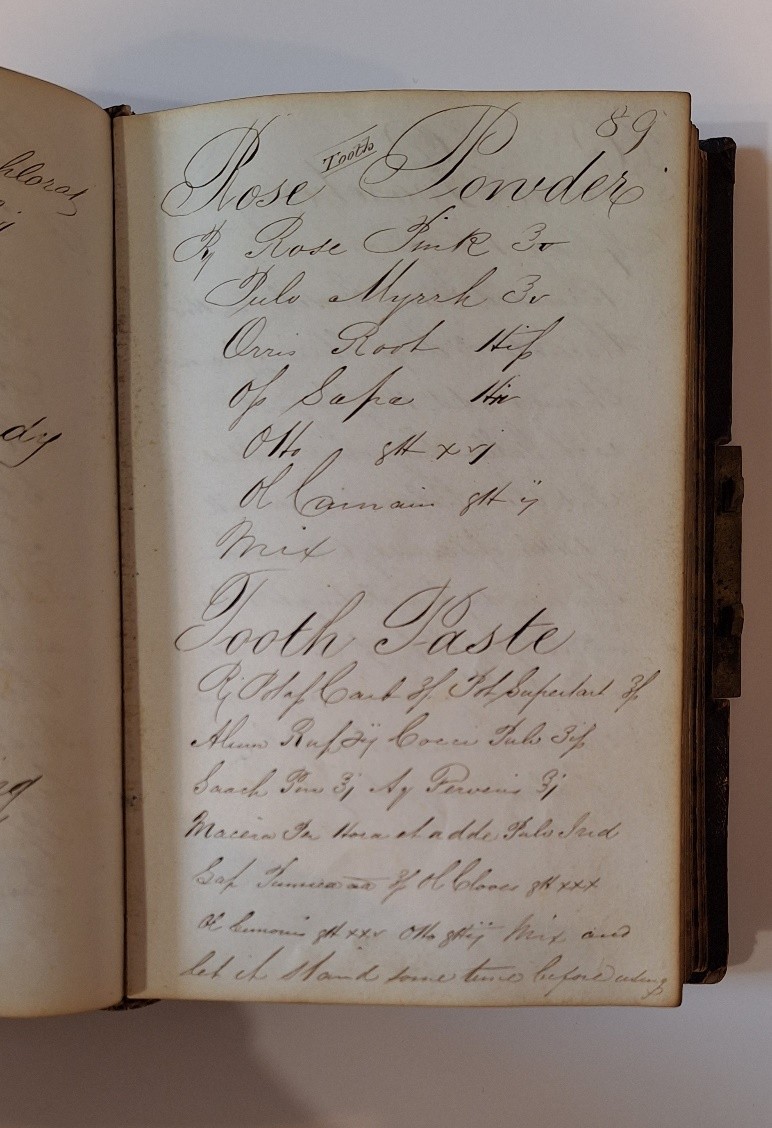 hlorat
dy
89
Rose Tooth Powder
Rx Rose Pink ʒv
Pulv Myrrh ʒv
Orris Root
Os Sapa
Otto gtt xvj
Ol Cinnam gtt ij
Mix
Tooth Paste
Rx Potass Carb ʒſs Pot Supertart ʒſs
Alum Rup ʒij Cocci Pulv ʒiſs
Sacch Puri ʒj Aq Fervens ʒj
Macera Per Hora et adde Pulv
Pumica aa ʒſs Ol Cloves gtt xxx
Ol Limonis gtt xxx Otto gtt ij Mix and
let it stand some time before using